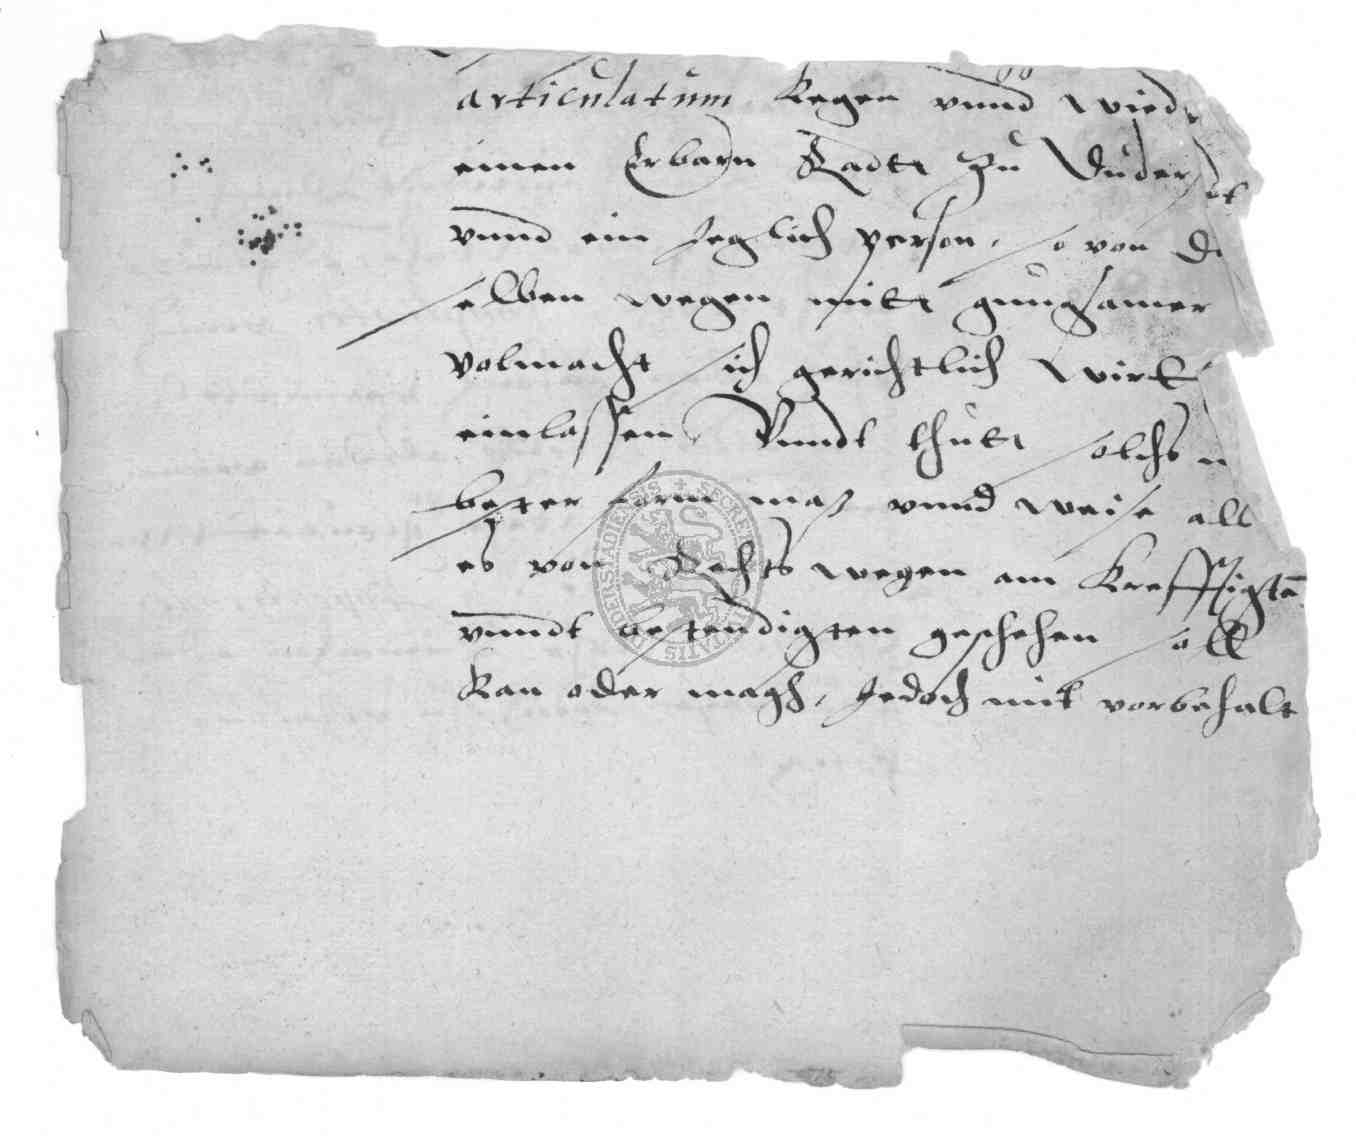 articulatum Kegen vnnd wied
einen Erbarn Radtt zu Duderst
vnnd ein Jeglich person, so von de
selben wegen mitt gnungsamer
volmacht sich gerichtlich wirt
einlassen, Vnndt thutt solchs
bester form maß vnnd weise all
es von Rechts wegen am Krefftigstē
vnndt bestendigsten geschehen soll
Kan oder magh, Jedoch mit vorbehalt
SECRET CIVITATIS DUDERSTADIENSIS